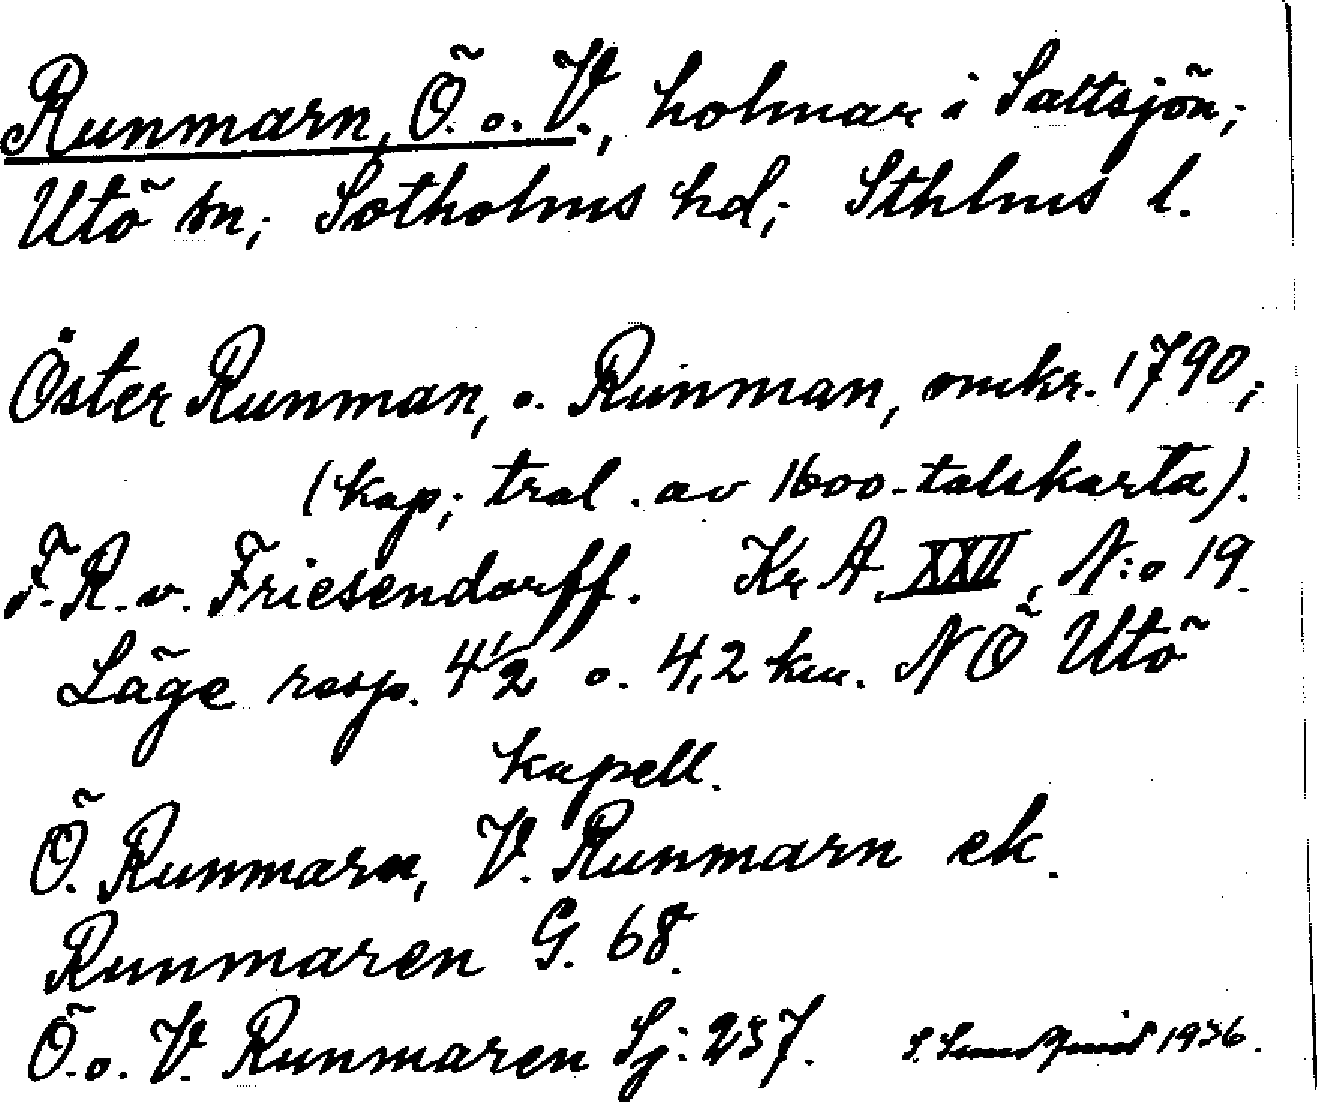 Runmarn, Ö. o. V., holmar i Saltsjön;
Utö sn; Sotholms hd; Sthlms l.
Öster Runman, o. Runman, omkr. 1790;
(kap; tral. av 1600-talskarta).
F. R. v. Friesendorff. Kr A. XXII, N:o 19.
Läge resp. 4 1/2 o. 4,2 km. NÖ Utö
kapell.
Ö. Runmarn, V. Runmarn ek.
Runmaren G. 68.
Ö. o. V. Runmaren Sj: 237. S. Sundquist 1936.